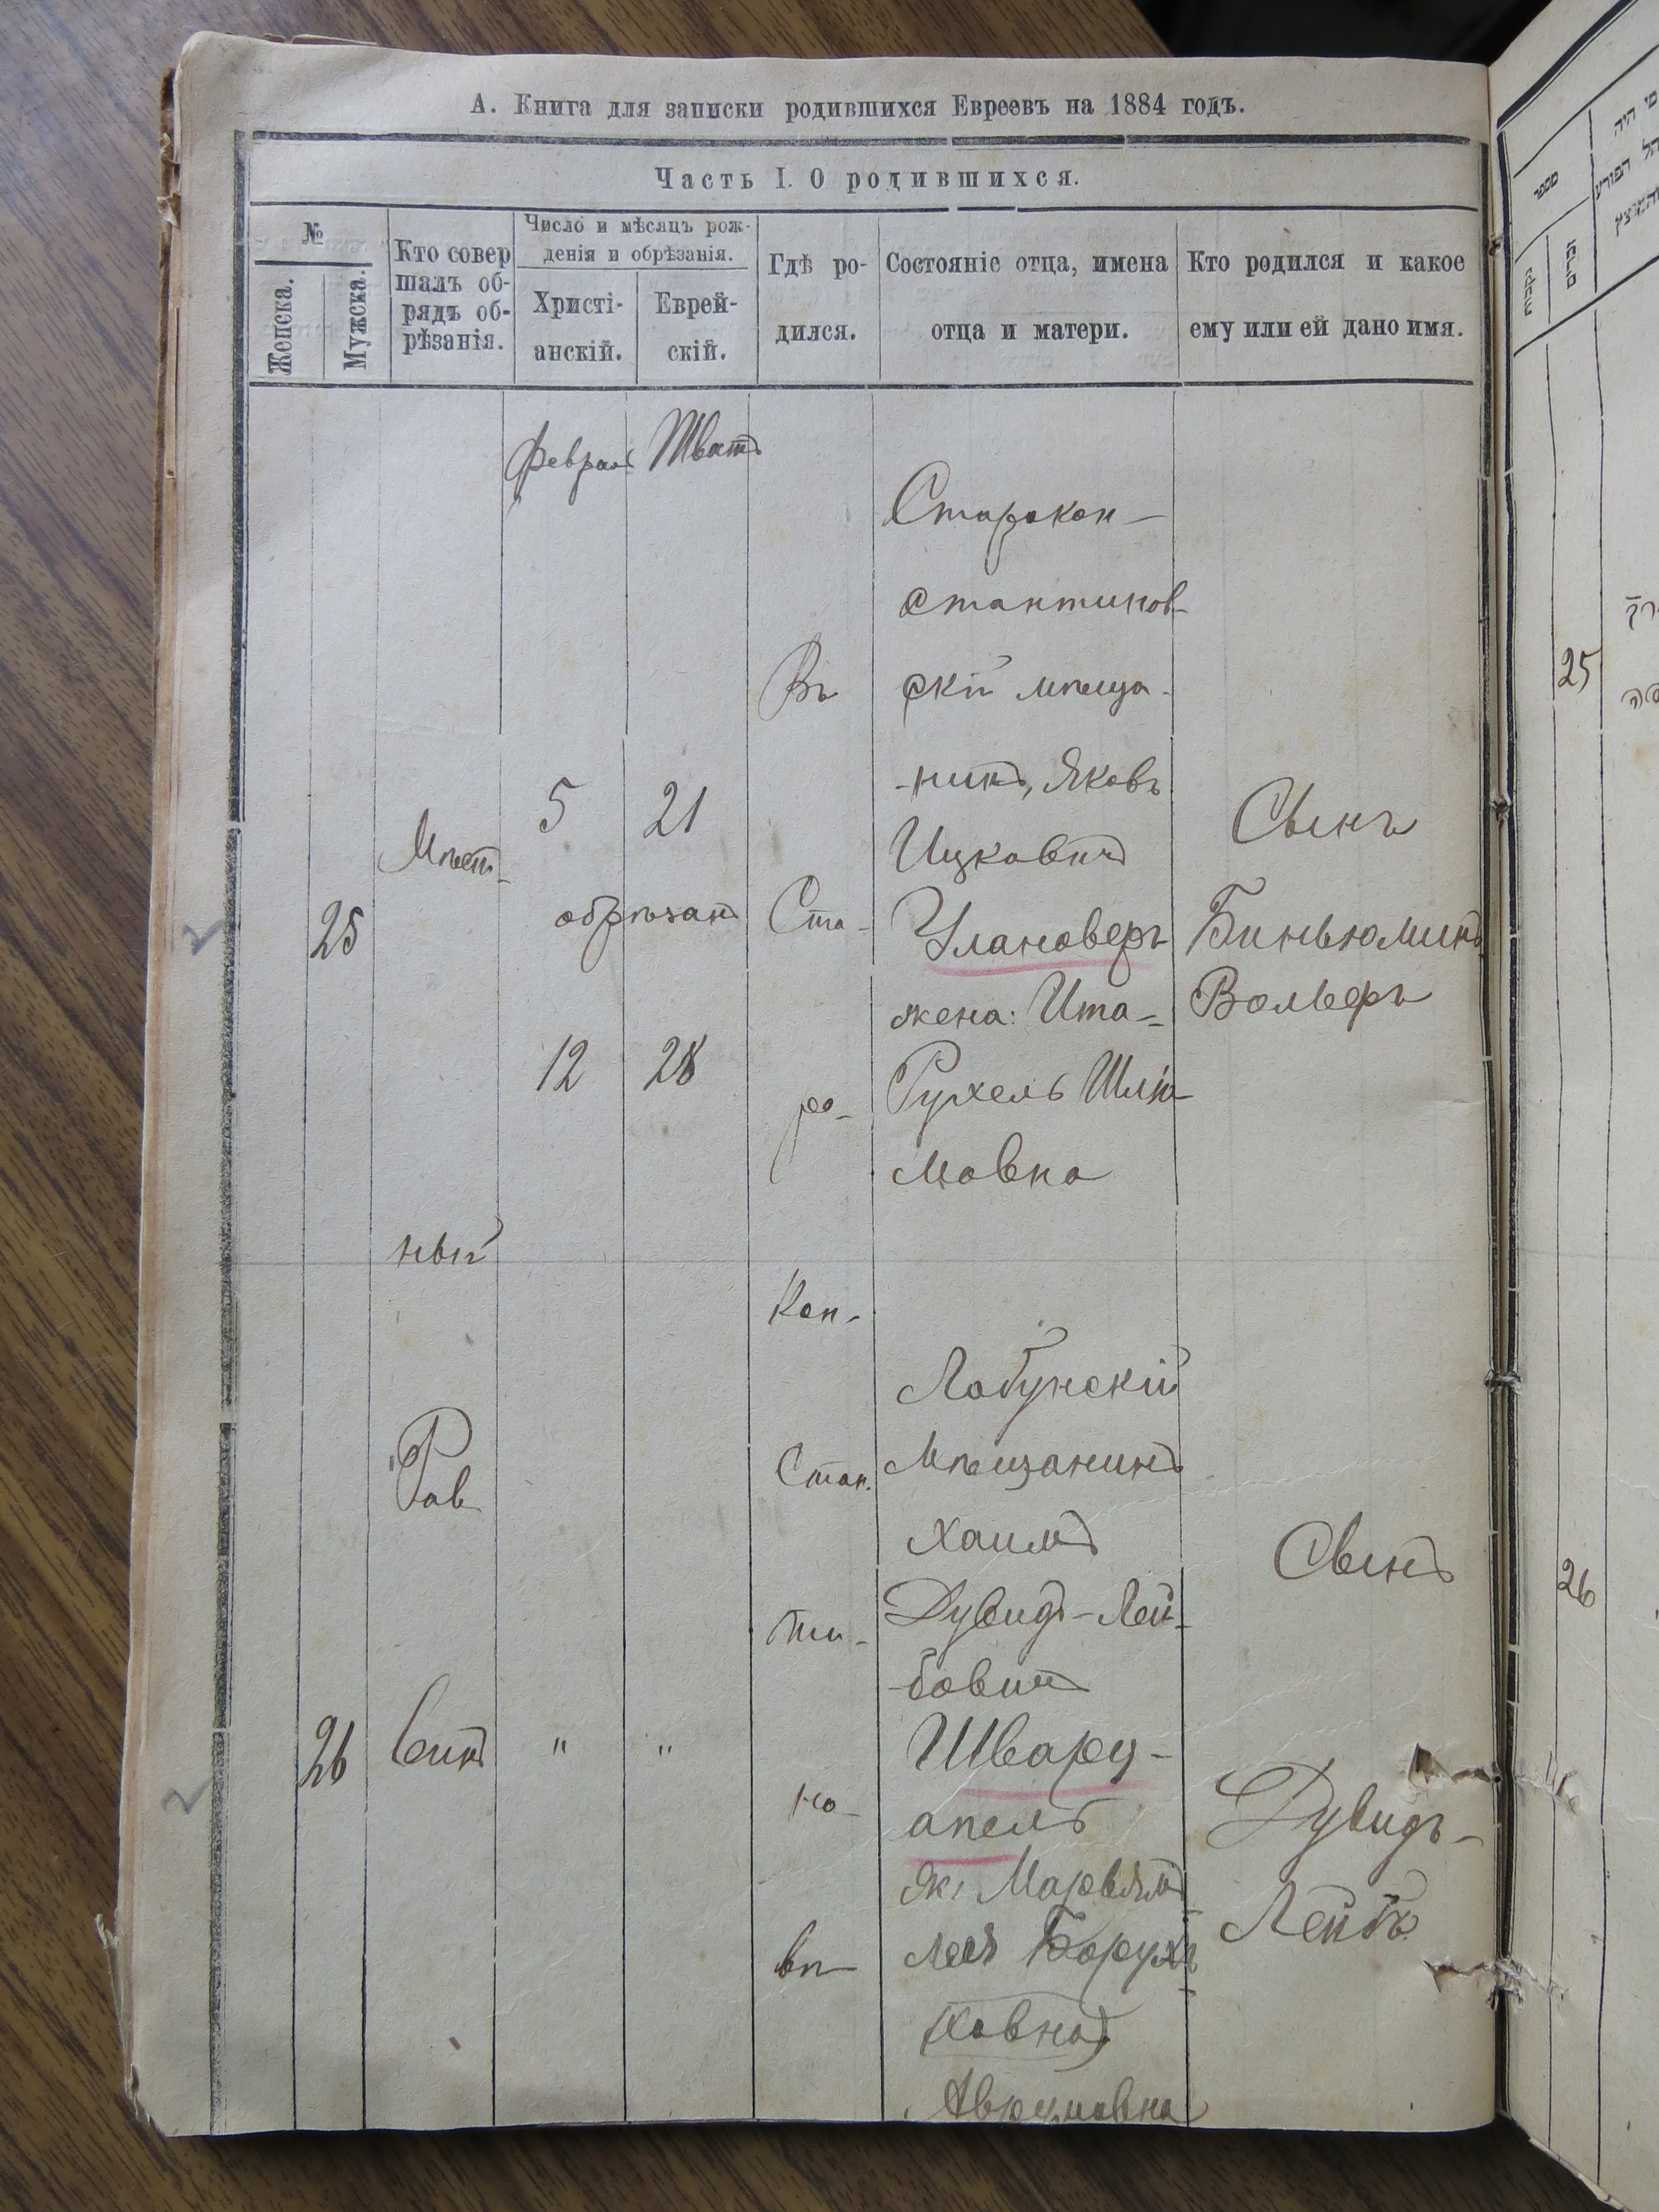 А. Книга для записки родившихся Евреевъ на 1884 годъ.
Часть I. О родившихся.
№
Женска.
Мужска.
Кто совер
шалъ об-
рядъ об-
рѣзанія.
Число и мѣсяцъ рож-
денія и обрѣзанія.
Христі-
анскій.
Еврей-
скій.
Гдѣ ро-
дился.
Состояніе отца, имена
отца и матери.
Кто родился и какое
ему или ей дано имя.
Февраль
Шватъ
25
Мѣст-
ный
Рав
винъ
5
21
обрѣзанъ
12
28
Въ
Ста-
ро-
Кон-
стан.
ти-
но-
вѣ
Старокон-
стантинов-
скій мѣща-
-нинъ, Яковъ
Ицковичъ
Улановеръ
жена: Ита-
Рухель Шлѣ-
мовна
Сынъ
Биньюминъ
Вольфъ
26
"
"
Лабунскій
Мѣщанинъ
Хаимъ
Дувидъ-Лей-
-бовичъ
Шварц-
апель
ж: Марьямъ
Лея Борухъ
(ховна)
Аврумовна
Сынъ
Дувидъ-
Лейбъ
מספר
נקבות
זכרים
מי היה
25
26